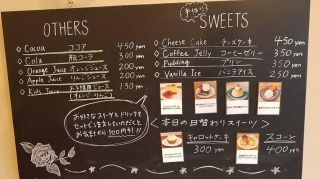 OTHERS
Cocoa ココア 450 yen
Cola コーラ 300 yen
Orange Juice オレンジジュース 200 yen
Apple Juice りんごジュース 200 yen
Kids Juice 150 yen
(オレンジ・りんご)
お好きなスイーツとドリンクを
セットで注文していただくと
お会計から100円引!!
手作り
SWEETS
Cheese Cake チーズケーキ 450 yen
Coffee Jelly コーヒーゼリー 350 yen
Pudding プリン 350 yen
Vanilla Ice バニラアイス 250 yen
本日の日替わりスイーツ
キャロットケーキ スコーン
300 yen 400 yen